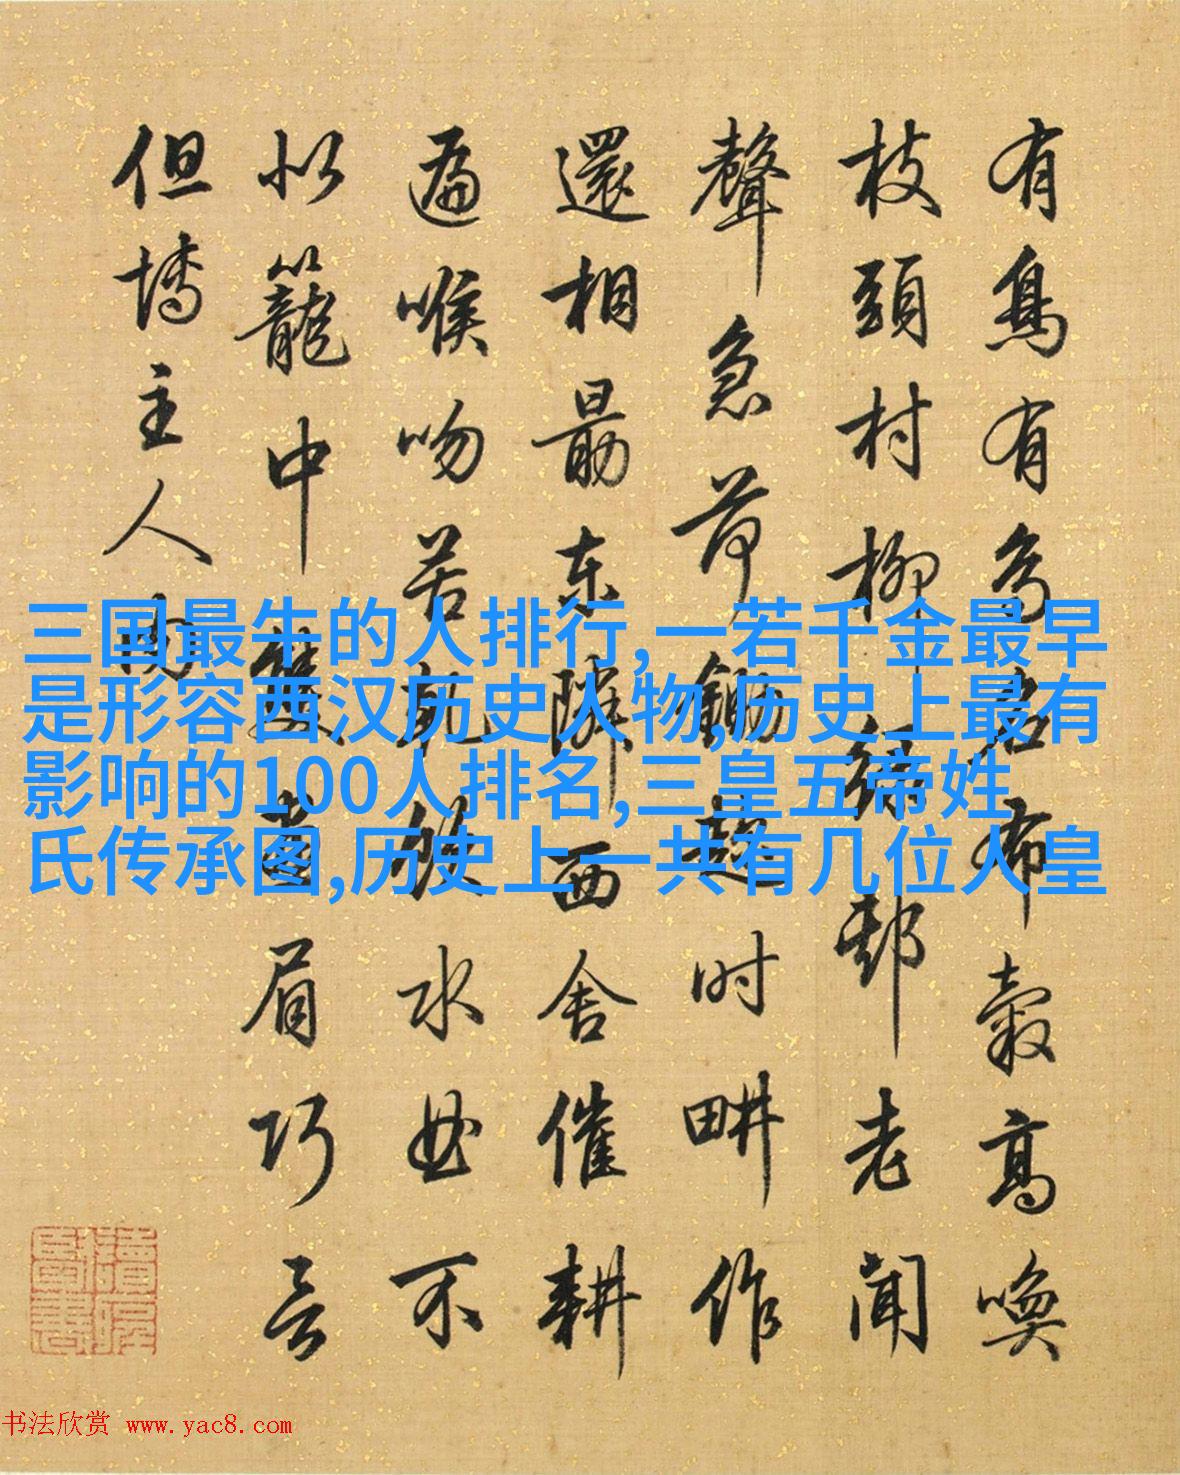 有鳥有鳥名布穀高喚
枝頭村柳綠老聞
聲急荷鋤趁時畊作
還相勗東隣西舍催耕
遍喉吻苦乾飲水曲不
似籠中雙畫眉巧言
但博主人肉
三国最牛的人排行,一若千金最早
是形容西汉历史人物,历史上最有
影响的100人排名,三皇五帝姓
氏传承图,历史上一共有几位人皇
书法欣赏 www.yac8.com